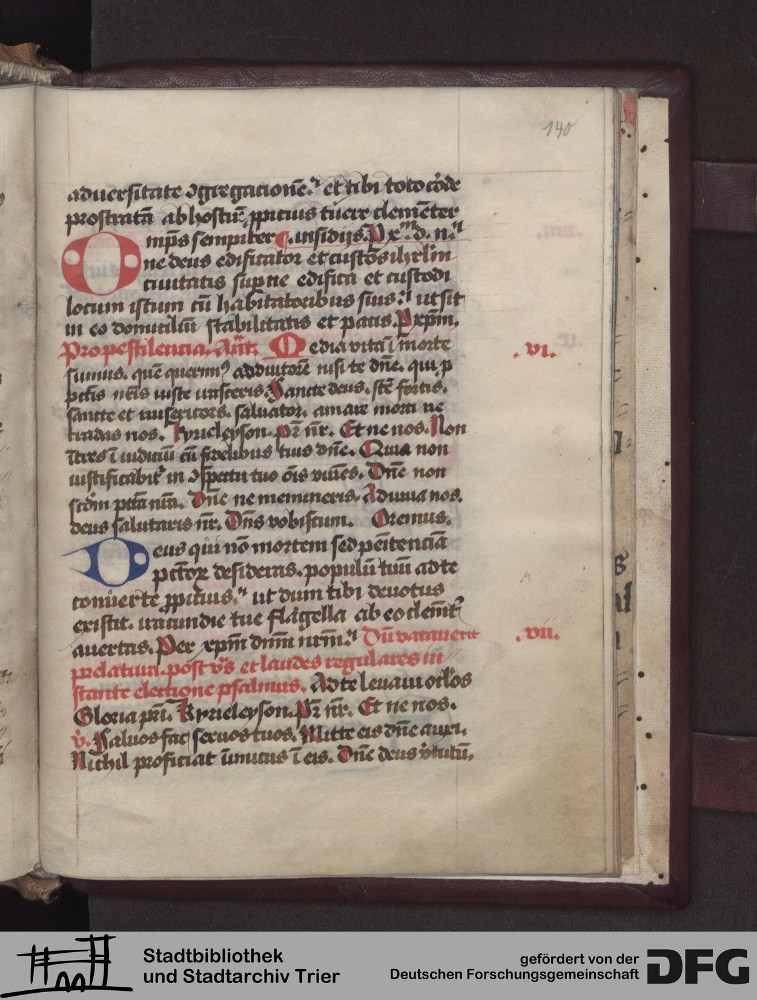 140
aduersitate ɔgregacionē. et tibi toto corde
prostratā ab hostiū ꝓpicius tuere clemēter
insidijs. P xp̄m d. n.
Omp̄s sempiter
ne deus edificator et custos ihrlm̄
ciuitatis supne edifica et custodi
locum istum cū habitatoribus suis. ut sit
in eo domicilūi stabilitatis et pacis. P xp̄m.
Pro pestilencia. Ant. Media vita ī morte .vi.
sumus. quē querimꝰ adiutorē nisi te dn̄e. qui ꝑ
pctīs nr̄is iuste irasceris. Sancte deus. sc̄e fortis.
sancte et misericors. saluator. amare morti ne
tradas nos. Kyrieleyson. Pr̄ nr̄. Et ne nos. Non
ītres ī iudiciū cū fidelibus tuis dn̄e. Quia non
iustificabitr in ɔspectu tuo ōis viuēs. Dn̄e non
scd̄m pctā nr̄a. Dn̄e ne memineris. Adiuua nos.
deus salutaris nr̄. Dn̄s vobiscum. Oremus.
Deus qui nō mortem sed penitenciā
pctōrꝝ desideras. populū tuū ad te
conuerte ꝓpicius. ut dum tibi deuotus
existit. iracundie tue flagella ab eo clemētr
auertas. Per xp̄m dn̄m nr̄m. Cū vacauerit .vii.
prelatura. post v̄s et laudes regulares in
stante electione psalmus. Ad te leuaui oclōs
Gloria pr̄i. Kyrieleyson. Pr̄ nr̄. Et ne nos.
v̄. Saluos fac seruos tuos. Mitte eis dn̄e auxi.
Nichil proficiat inimicus ī eis. Dn̄e deus v̄tutū.
Stadtbibliothek
und Stadtarchiv Trier
gefördert von der
Deutschen Forschungsgemeinschaft DFG